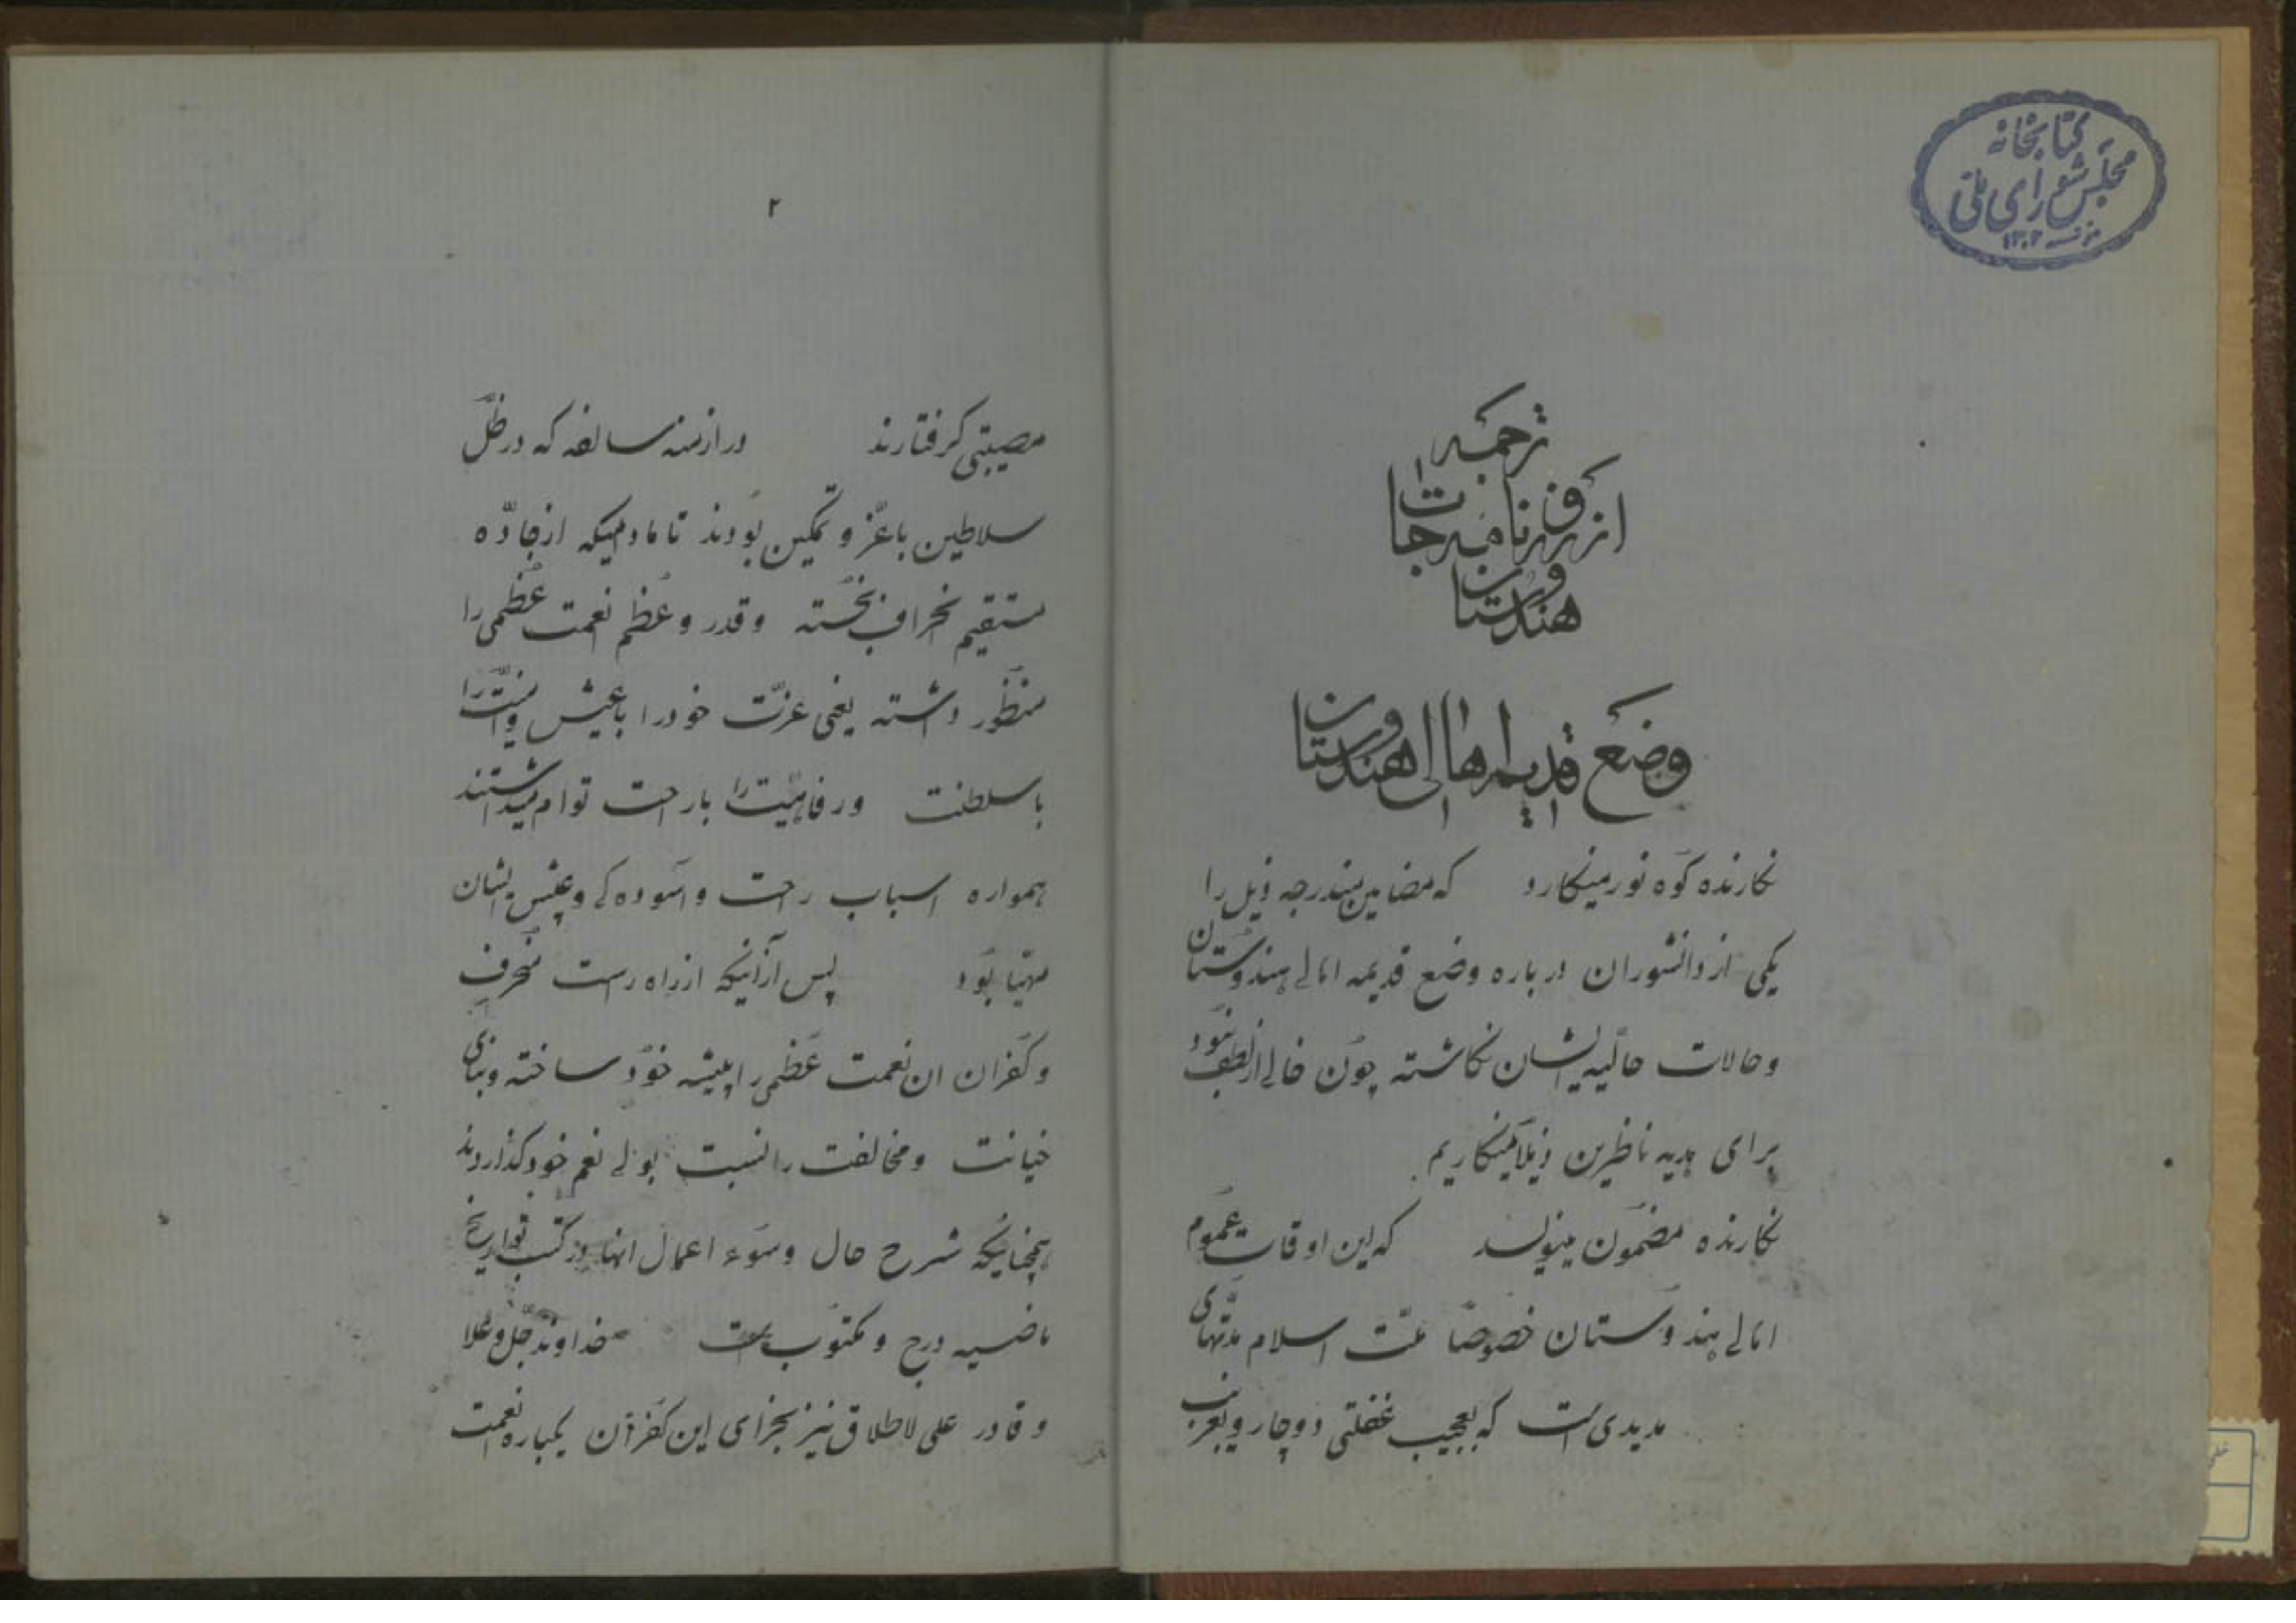 کتابخانه
مجلس شورای ملی
۱۳۰۲
ترجمه
از روزنامه جات
هندوستان
وضع قدیم اهالی هندوستان
نکارنده کوه نور مینکارد که مضامین مندرجه ذیل را
یکی از دانشوران درباره وضع قدیمه اهالی هندوستان
و حالات حالیه ایشان نکاشته چون خالی از لطف نبود
برای هدیه ناظرین ذیلاً مینکاریم
نکارنده مضمون مینویسد که این اوقات عموم
اهالی هندوستان خصوصاً ملّت اسلام مدّتهای
مدیدی است که بعجیب غفلتی دوچار و بغریب
۲
مصیبتی کرفتارند در ازمنه سالفه که در ظلّ
سلاطین با عزّ و تمکین بودند تا مادامیکه از جادّه
مستقیم انحراف نجسته و قدر و عظم نعمت عظمی را
منظور داشته یعنی عزّت خود را با عیش و امنیّت را
با سلطنت و رفاهیّت را با راحت توام میداشتند
همواره اسباب راحت و آسوده کی و عیش ایشان
مهیّا بود پس از آنیکه از راه راست منحرف
و کفران ان نعمت عظمی را پیشه خود ساخته و بنای
خیانت و مخالفت را نسبت بولی نعم خود کذاردند
همچنانیکه شرح حال و سوء اعمال انها در کتب تواریخ
ماضیه درج و مکتوب است خداوند جلّ و علا
و قادر علی الاطلاق نیز بجزای این کفران یکباره نعمت